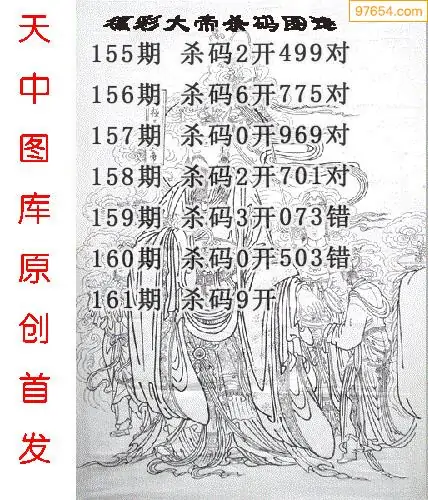 97654.com
福彩大帝杀码图
155期 杀码2开499对
156期 杀码6开775对
157期 杀码0开969对
158期 杀码2开701对
159期 杀码3开073错
160期 杀码0开503错
161期 杀码9开
天中图库原创首发